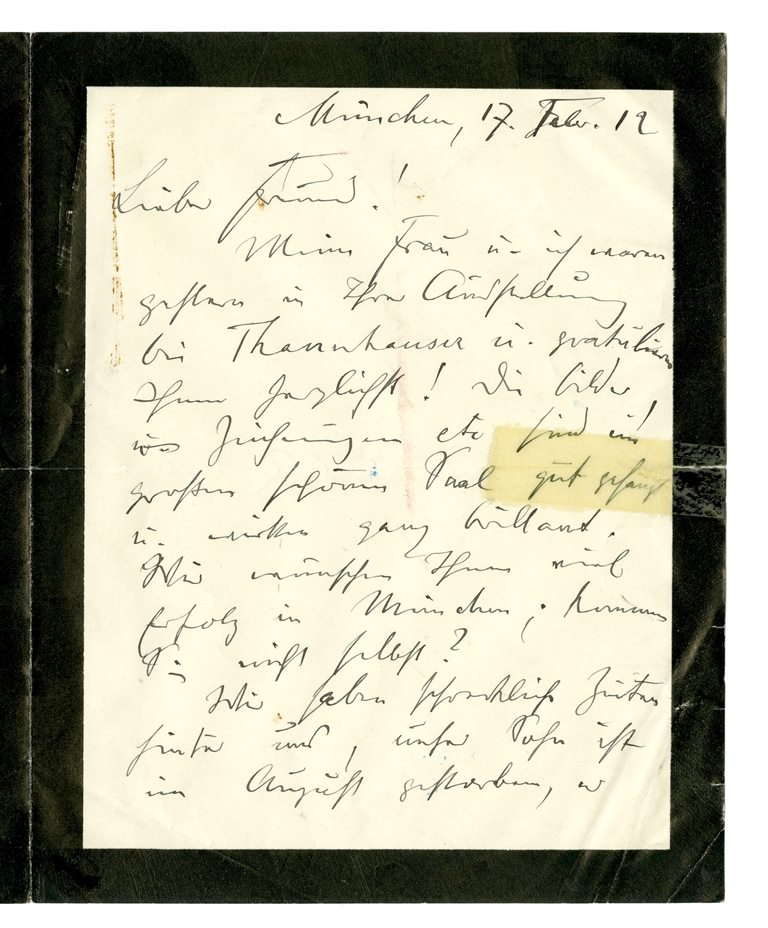 München, 17. Febr. 12
Lieber Freund!
Meine Frau u. ich waren
gestern in Ihrer Ausstellung
bei Thannhauser u. gratulieren
Ihnen herzlichst! Die Bilder
Zeichnungen etc sind im
großen schönen Saal gut gehängt
u. wirken ganz brillant.
Wir wünschen Ihnen viel
Erfolg in München; kommen
Sie nicht selbst?
Wir haben schreckliche Zeiten
hinter uns, unser Sohn ist
im August gestorben, er